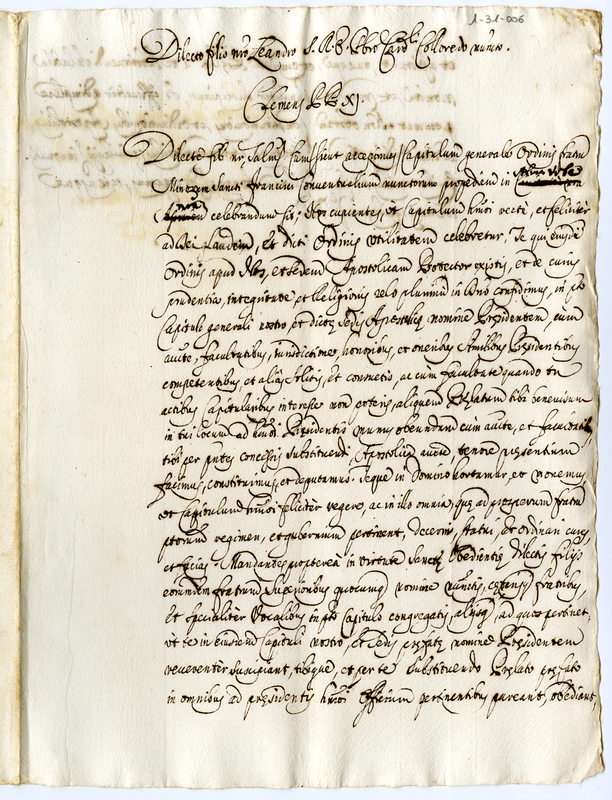 1-31-006
Dilecto filio nro Leandro S.R.E. Pbro Card.li Colloredo nuncto.
Clemens PP. XI.
Dilecte fili nr, Salut. Cum sicut accepimus Capitulum generale Ordinis fratrum
Minorum Sancti Francisci Conventualium nuncutorum propediem in Alma Urbe
nra celebrandum sit; Nos cupientes, ut Capitulum hmoi recte, et feliciter
ad Dei Laudem, et dicti Ordinis utilitatem celebretur, Te qui eiusdem
Ordinis apud Nos, et sedem Apostolicam Protector existis, et de cuius
prudentia, integritate, et Religionis zelo plurimum in Dno confidimus, in pto
Capitulo generali nostro, et dictae Sedis Apostolicae nomine Praesidentem, cum
auctte, facultatibus, iurisdictione, honoribus, et oneribus similibus Praesidentibus
competentibus, et alias solitis, et consuetis, ac cum facultate quando tu
actibus Capitularibus interesse non poteris, aliquem Praelatum tibi benevisum
in tui locum ad hmoi Praesidentis munus obeundum cum auctte, et facultatibus
tibi per pntes concessis substituendi, Apostolica auctte tenore praesentium
facimus, constituimus, et deputamus. Teque in Domino hortamur, et monemus,
ut Capitulum hmoi feliciter regere, ac in illo omnia, quae ad prosperum fratrum
ptorum regimen, et gubernium pertinent, decerni, statui, et ordinari cures,
et facias. Mandantes propterea in virtute Sanctae Obedientiae dilectis filijs
eorundem fratrum Superioribus quocumq. nomine nunctis, caeterisq. fratribus,
et specialiter Vocalibus in pto Capitulo congregatis, alijsq., ad quos pertinet,
ut te in eiusdem Capituli nostro, et Sedis praefatae nomine Praesidentem
reverenter suscipiant, tibique, et per te substituendo Praelato praefato
in omnibus ad praesidentis hmoi officium pertinentibus pareant, obediant,